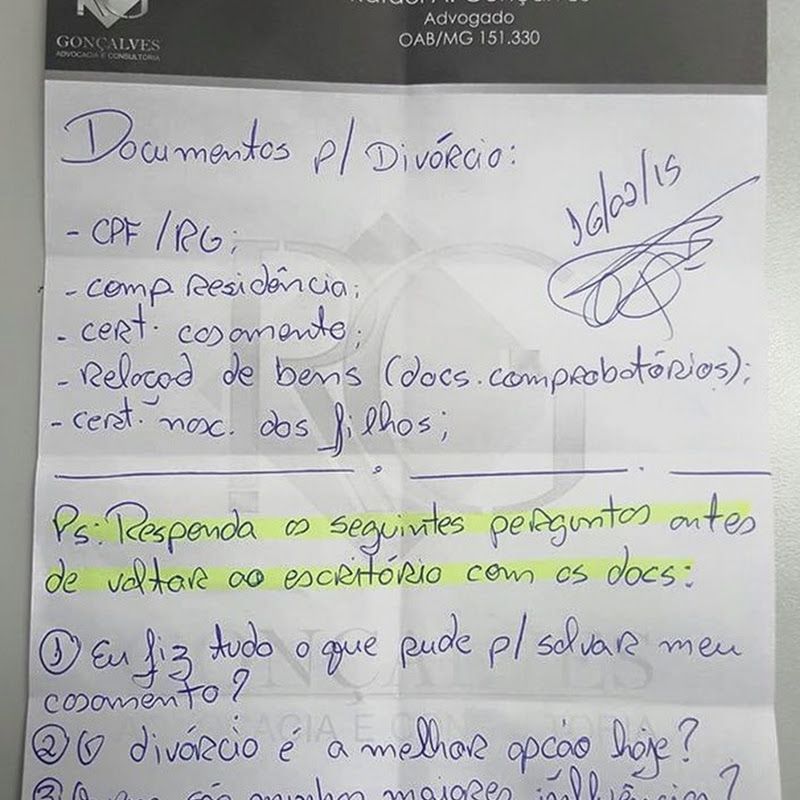 GONÇALVES
ADVOCACIA E CONSULTORIA
Advogado
OAB/MG 151.330
Documentos p/ Divórcio:
16/02/15
- CPF/RG;
- comp Residência;
- cert. casamento;
- Relação de bens (docs. comprobatórios);
- cert. nasc. dos filhos;
Ps: Responda as seguintes perguntas antes
de voltar ao escritório com os docs:
① Eu fiz tudo o que pude p/ salvar meu
casamento?
GONÇALVES
ADVOCACIA E CONSULTORIA
② O divórcio é a melhor opção hoje?
③ são minhas maiores influências?